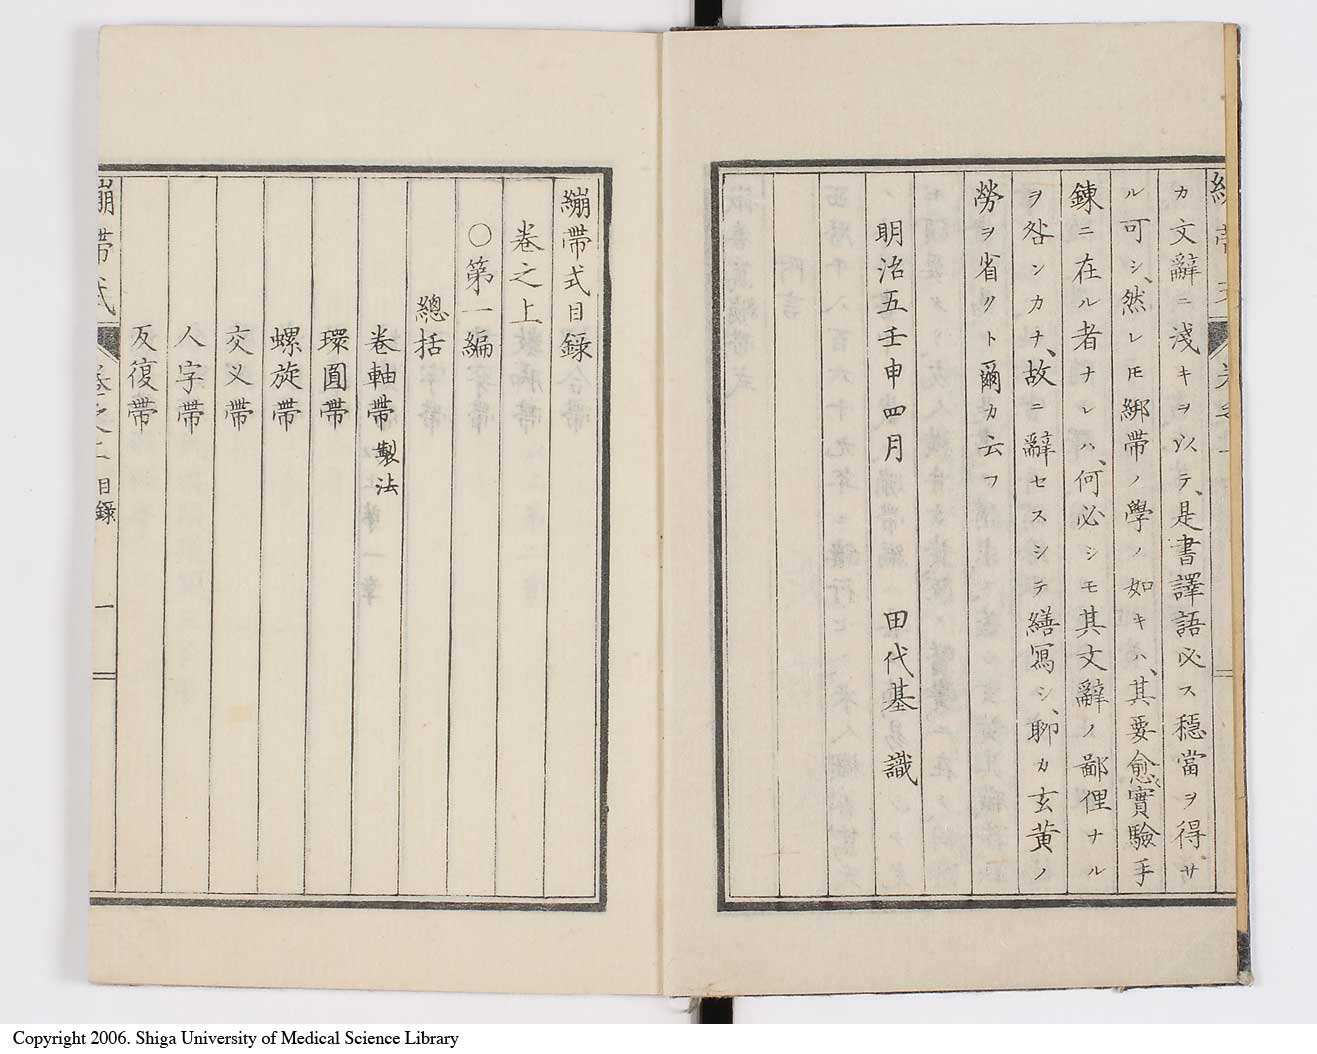 カ文辭ニ淺キヲ以テ、是書譯語必ス穩當ヲ得サ
ル可シ、然レ𪜈綁帶ノ學ノ如キハ、其要愈實驗手
鍊ニ在ル者ナレハ、何必シモ其文辭ノ鄙俚ナル
ヲ咎ンカナ、故ニ辭セスシテ繕寫シ、聊カ玄黄ノ
勞ヲ省クト爾カ云フ
明治五壬申四月 田代基識
繃帶式目錄
卷之上
〇第一編
總括
卷軸帶製法
環圓帶
螺旋帶
交叉帶
人字帶
反復帶
繃帶式 卷之上 目錄 一
Copyright 2006. Shiga University of Medical Science Library